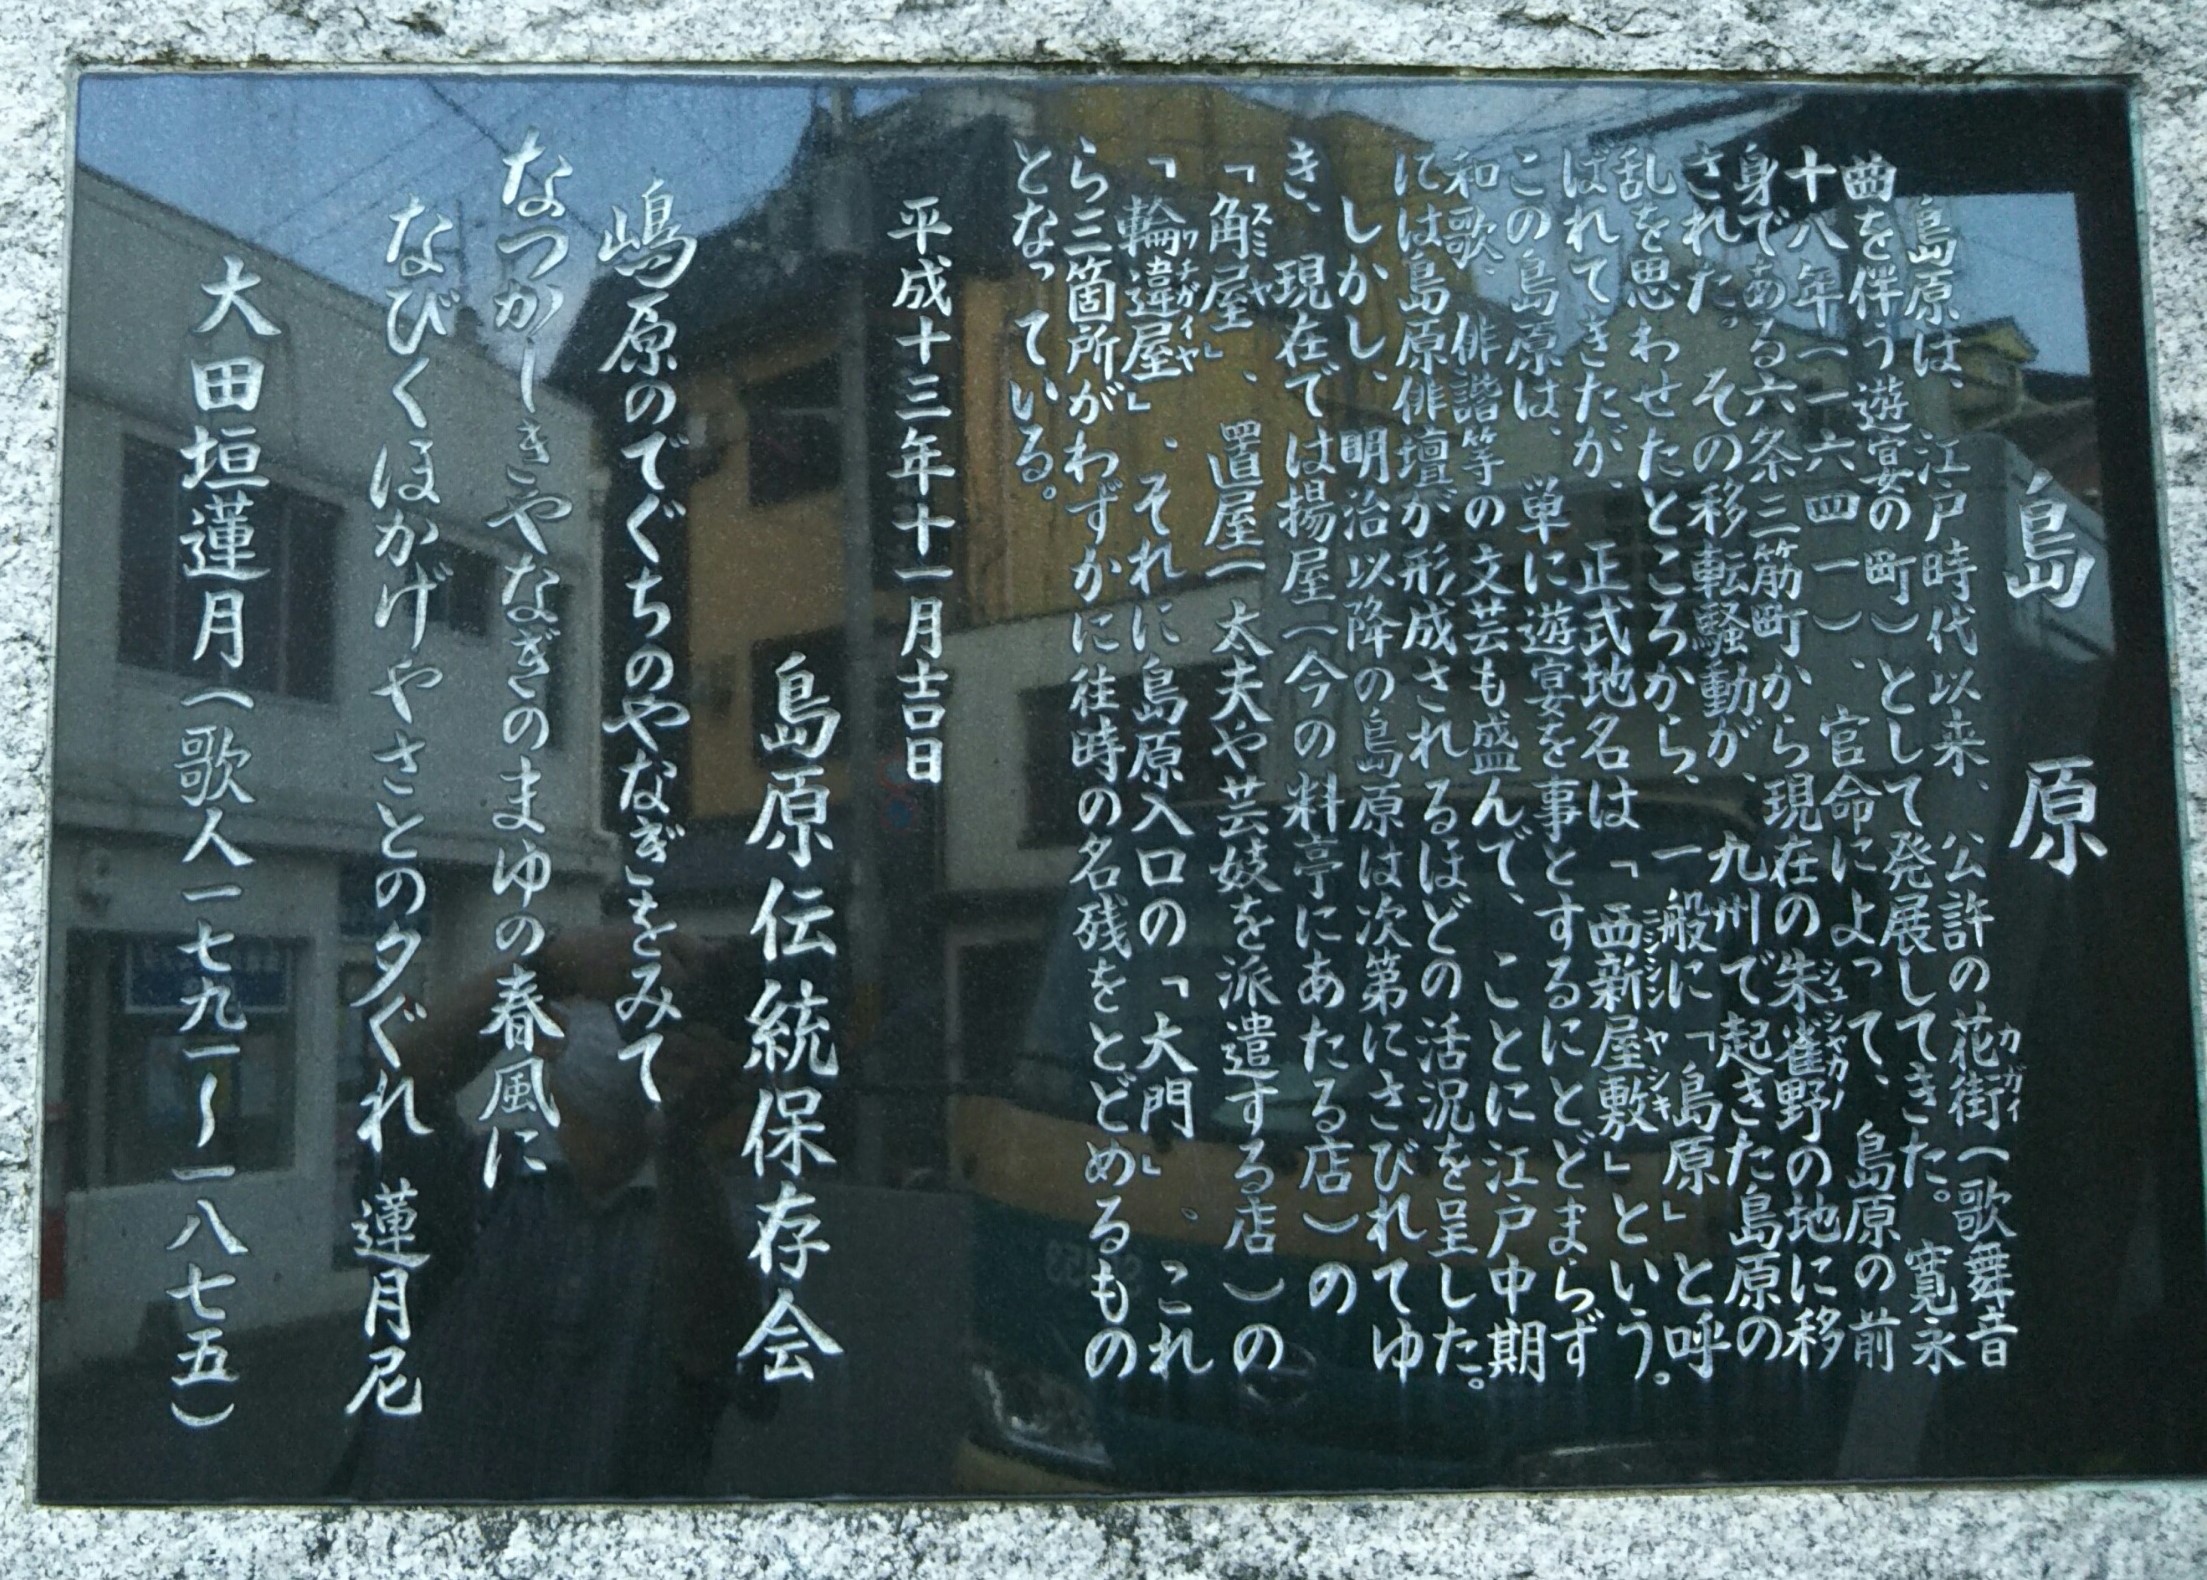 島原
島原は、江戸時代以来、公許の花街（歌舞音
カガイ
曲を伴う遊宴の町）として発展してきた。寛永
十八年（一六四一）、官命によって、島原の前
身である六条三筋町から現在の朱雀野の地に移
シュジャカノ
された。その移転騒動が、九州で起きた島原の
乱を思わせたところから、一般に「島原」と呼
ばれてきたが、正式地名は「西新屋敷」という。
ニシシンヤシキ
この島原は、単に遊宴を事とするにとどまらず
和歌、俳諧等の文芸も盛んで、ことに江戸中期
には島原俳壇が形成されるほどの活況を呈した。
しかし、明治以降の島原は次第にさびれてゆ
き、現在では揚屋（今の料亭にあたる店）の
「角屋」、置屋（太夫や芸妓を派遣する店）の
スミヤ
「輪違屋」、それに島原入口の「大門」、これ
ワチガイヤ
ら三箇所がわずかに往時の名残をとどめるもの
となっている。
平成十三年十一月吉日
島原伝統保存会
嶋原のでぐちのやなぎをみて
なつかしきやなぎのまゆの春風に
なびくほかげやさとの夕ぐれ 蓮月尼
大田垣蓮月（歌人一七九一〜一八七五）